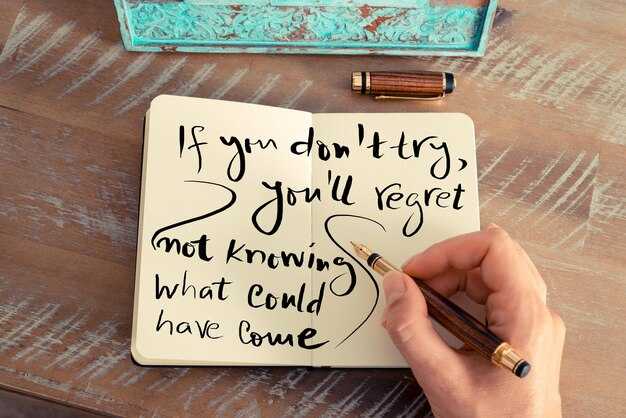 If you don't try,
you'll regret
not knowing
what could
have come